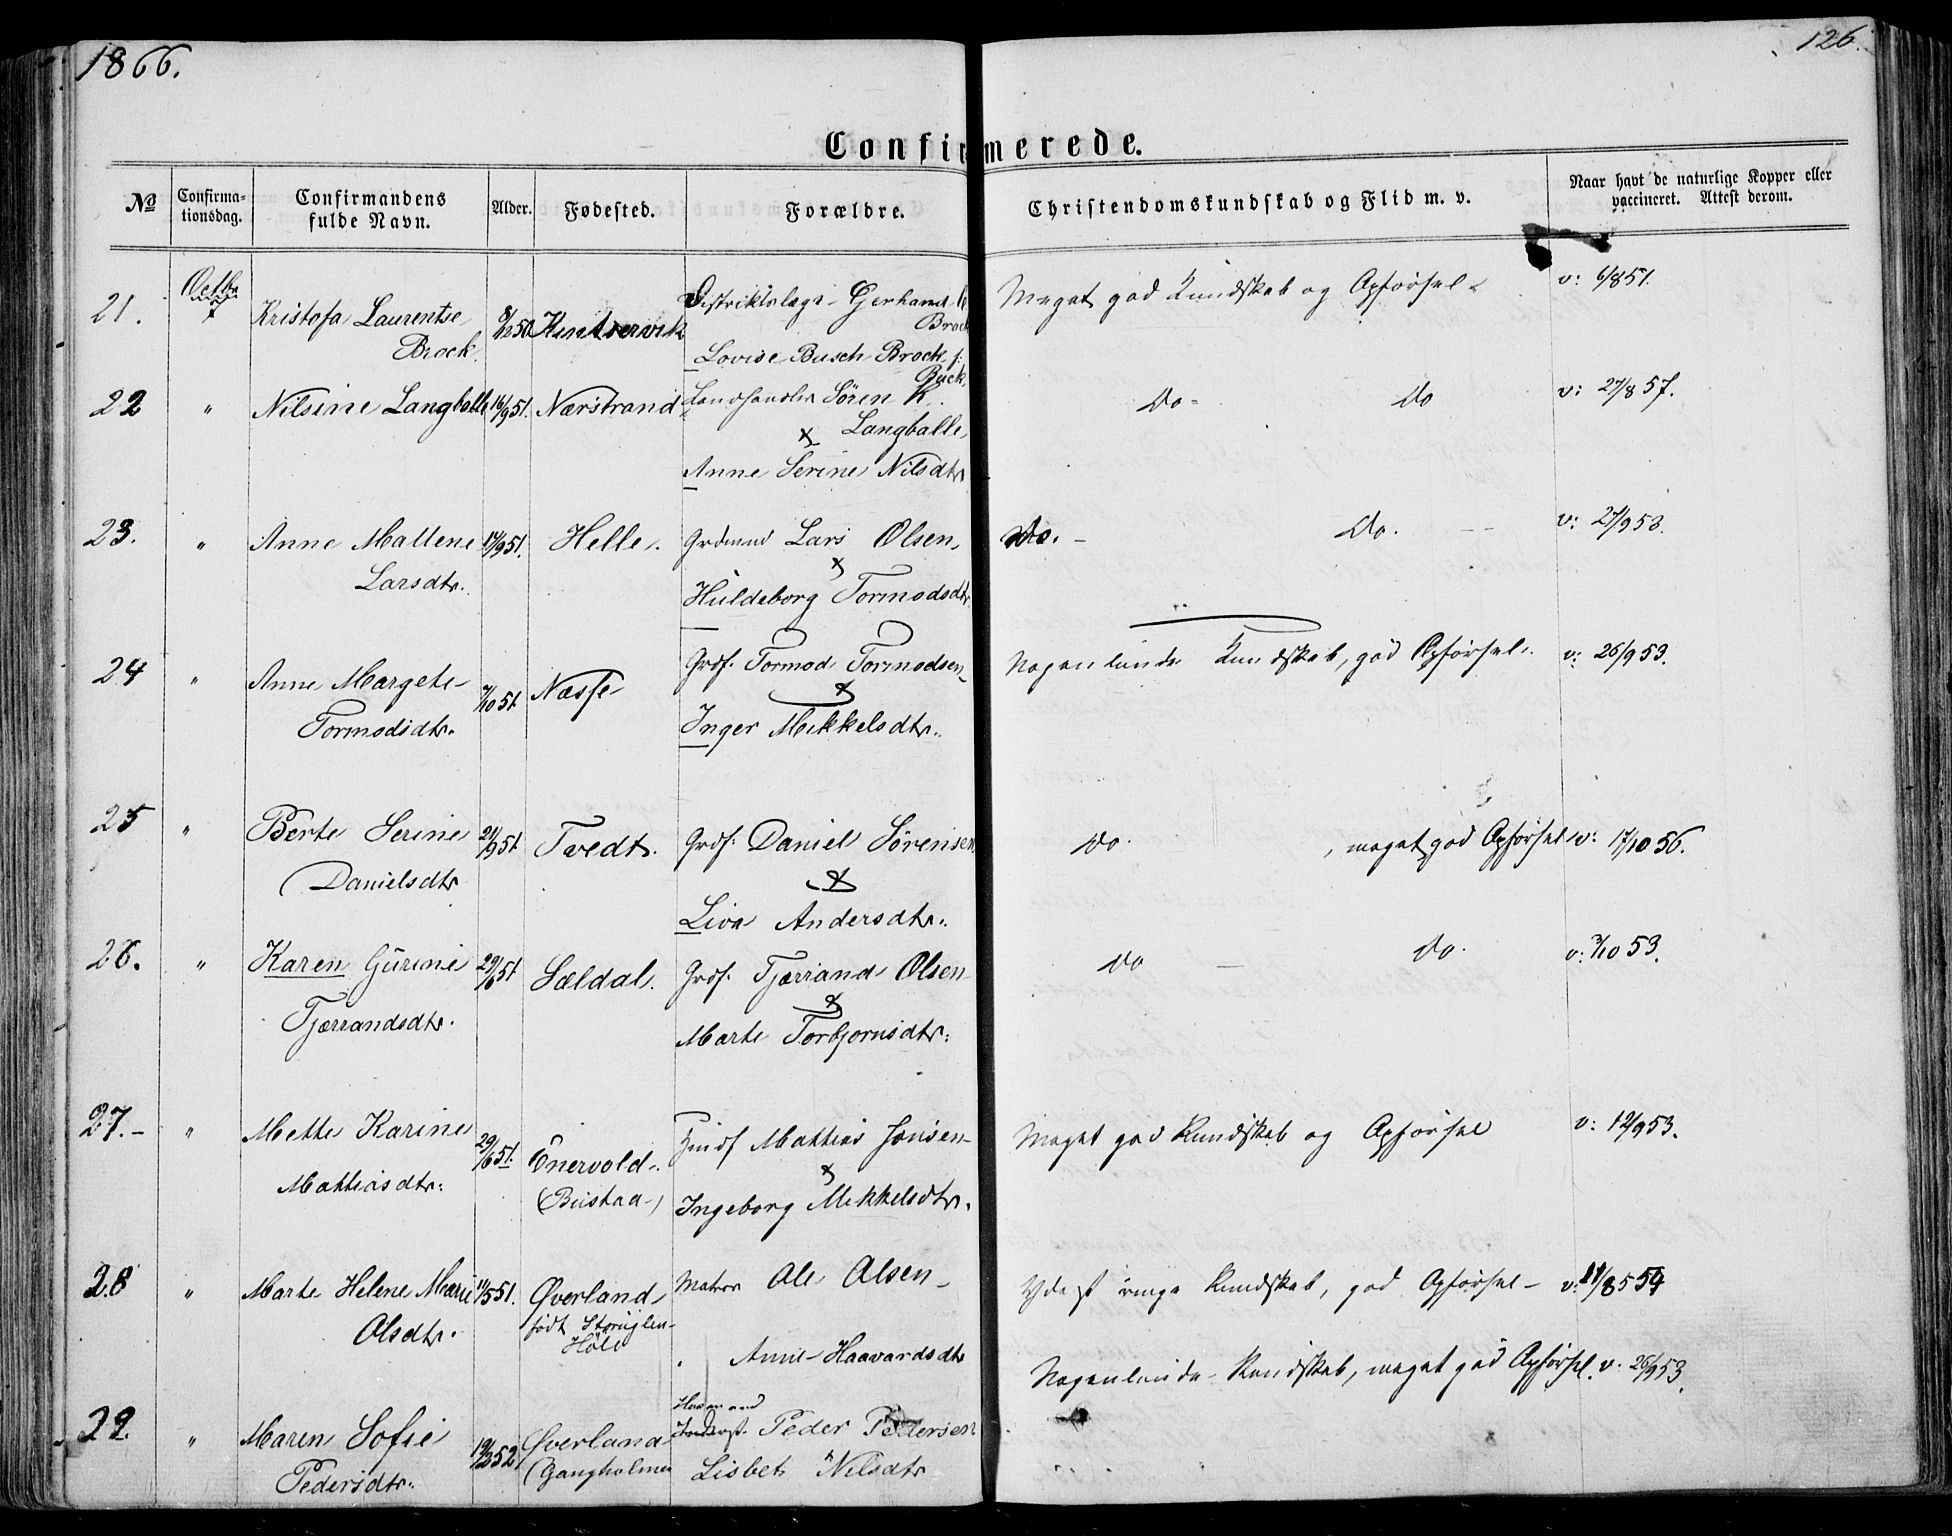 1866.
126.
Confirmerede.
No
Confirma-
tionsdag.
Confirmandens
fulde Navn.
Alder.
Fødested.
Forældre.
Christendomskundskab og Flid m. v.
Naar havt de naturlige Kopper eller
vaccineret. Attest derom.
21.
Octbr
7
Kristofa Laurentse
Brock.
8/12 50
Distriktslæge Gerhard
Brock
Lovise Busch Brock f:
Buck
Meget god Kundskab og Opførsel
v: 6/8 51.
22
"
Nilsine Langballe
16/9 51.
Nærstrand
Landhandler Søren K.
Langballe
x
Anne Serine Nilsdtr
Do
Do
v: 27/8 57.
23.
"
Anne Mallene
Larsdtr.
17/9 51.
Helle.
Grdmnd Lars Olsen
x
Huldeborg Tormodsdtr
Do.
Do.
v: 27/9 53.
24
"
Anne Margete
Tormodsdtr.
7/10 51.
Næsse
Grdf. Tormod Tormodsen
x
Inger Mikkelsdtr.
Nogenlunde Kundskab, god Opførsel.
v: 26/9 53.
25
"
Berte Serine
Danielsdtr
21/9 51
Tvedt.
Grdf. Daniel Sørensen
x
Liva Andersdtr.
Do.
, meget god Opførsel
v: 17/10 56.
26.
"
Karen Gurine
Tjærrandsdtr.
29/6 51
Sældal.
Grdf. Tjærrand Olsen
x
Marte Torbjørnsdtr.
Do
Do.
v: 3/10 53.
27.
"
Mette Karine
Mattiasdtr.
29/6 51.
Enervold
(Bustad)
Mattias Jonsen
x
Ingeborg Mikkelsdtr.
Meget god Kundskab og Opførsel
v: 12/9 53.
28
"
Marte Helene Marie
Olsdtr.
11/5 51.
Øverland
født
Höle
Matros Ole Olsen
Anne Haavardsdtr
Yderst ringe Kundskab, god Opførsel
29.
"
Maren Sofie
Pedersdtr.
19/2 52
Øverland
(Gangholmen
Husmand
Inderst. Peder Pedersen
Lisbet Nilsdtr
Nogenlunde Kundskab, meget god Opførsel.
v. 26/9 53.